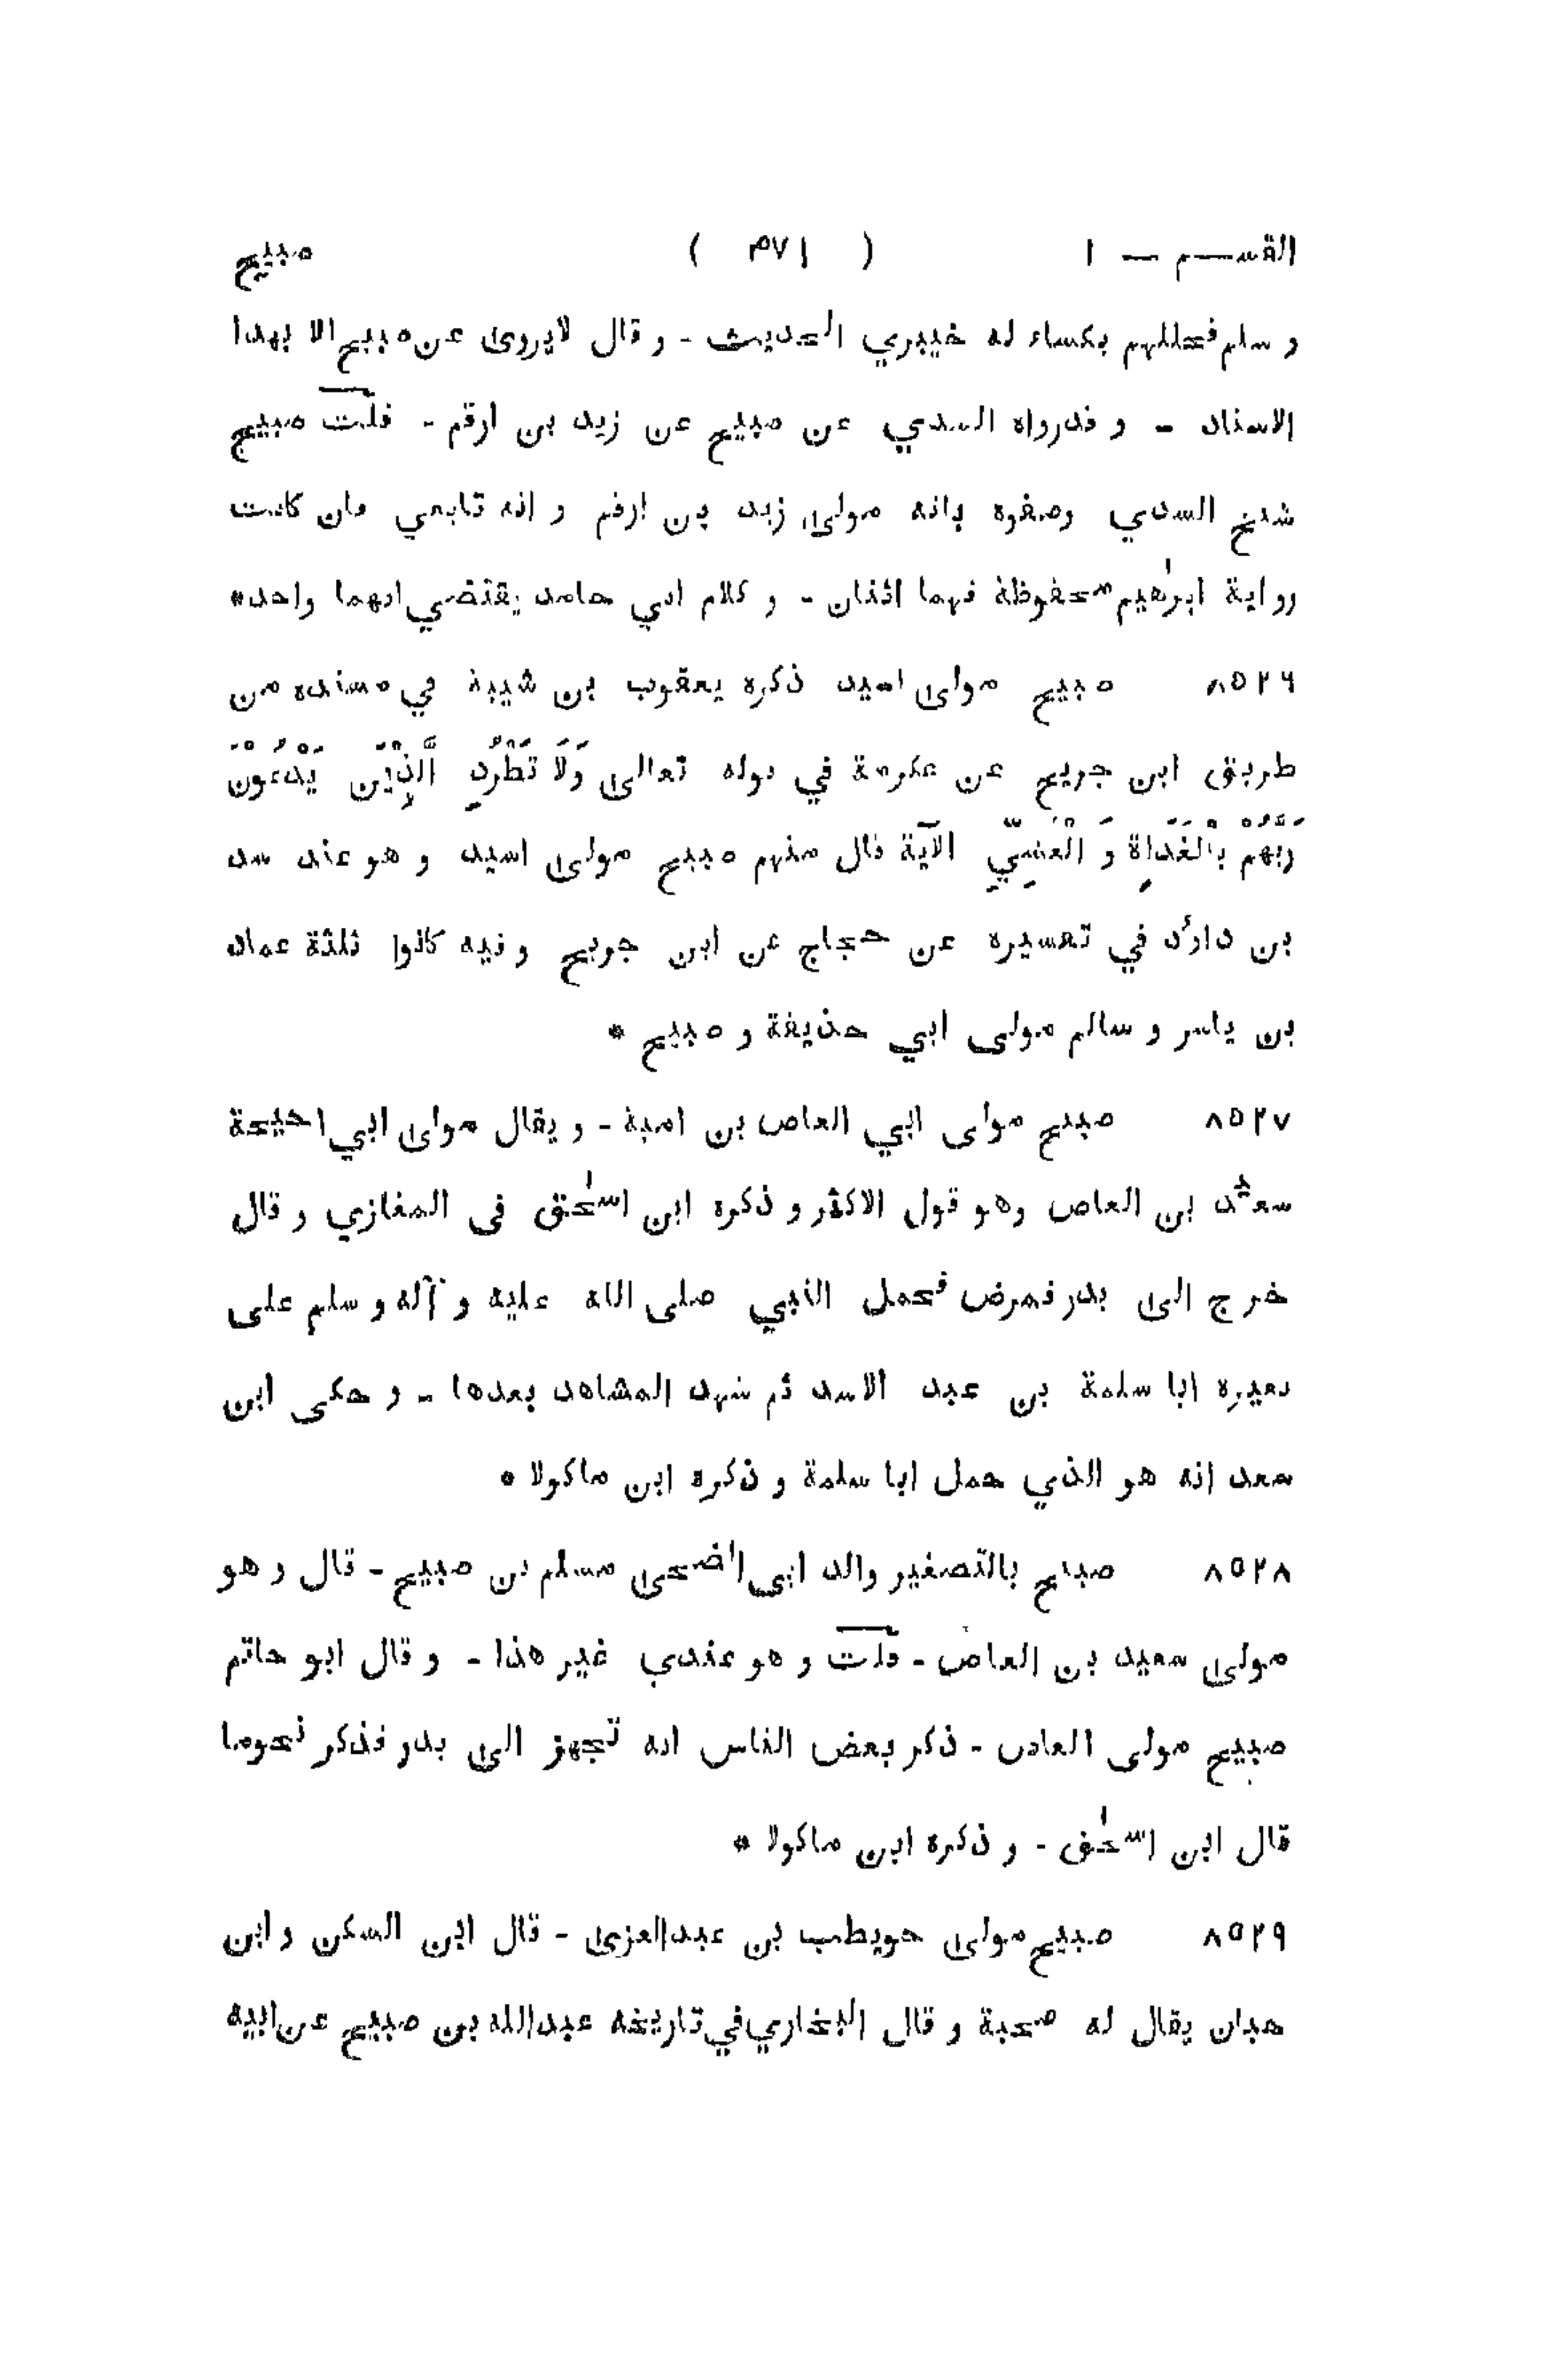 القســم — ١ ( ٤٧١ ) صبيح
و سلم فجللهم بكساء له خيبري الحديث - و قال لايروى عن صبيح الا بهذا
الاسناد - و قدرواه السدي عن صبيح عن زيد بن ارقم - قلت صبيح
شيخ السدي وصفوه بانه مولى زيد بن ارقم و انه تابعي فان كانت
رواية ابرٰهيم محفوظة فهما اثنان - و كلام ابي حامد يقتضي انهما واحد*
٨٥٢٦ صبيح مولى اسيد ذكره يعقوب بن شيبة في مسنده من
طريق ابن جريج عن عكرمة في قوله تعالى وَلَا تَطْرُدِ الَّذِيْنَ يَدْعُوْنَ
رَبَّهُمْ بِالْغَدَاةِ وَ الْعَشِيِّ الآية قال منهم صبيح مولى اسيد و هو عند سنيد
بن داوٗد في تفسيره عن حجاج عن ابن جريج و فيه كانوا ثلثة عمار
بن ياسر و سالم مولى ابي حذيفة و صبيح *
٨٥٢٧ صبيح مولى ابي العاص بن امية - و يقال مولى ابي احيحة
سعيد بن العاص وهو قول الاكثر و ذكره ابن اسحٰق في المغازي و قال
خرج الى بدر فمرض فحمل النبي صلى الله عليه و آله و سلم على
بعيره ابا سلمة بن عبد الاسد ثم شهد المشاهد بعدها - و حكى ابن
سعد انه هو الذي حمل ابا سلمة و ذكره ابن ماكولا *
٨٥٢٨ صبيح بالتصغير والد ابي الضحى مسلم بن صبيح - قال و هو
مولى سعيد بن العاص - قلت و هو عندي غير هذا - و قال ابو حاتم
صبيح مولى العاص - ذكر بعض الناس انه تجهز الى بدر فذكر نحوما
قال ابن اسحٰق - و ذكره ابن ماكولا *
٨٥٢٩ صبيح مولى حويطب بن عبدالعزى - قال ابن السكن و ابن
حبان يقال له صحبة و قال البخاري في تاريخه عبدالله بن صبيح عن ابيه